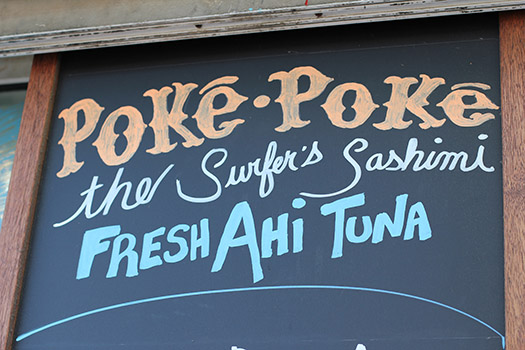 POKē·POKē
the Surfer's Sashimi
FRESH AHi TUNA